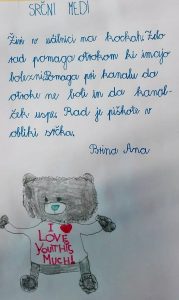 SRČNI MEDI
Živi v učilnici na kockah. Zelo
rad pomaga otrokom ki imajo
bolezni. Pomaga pri kanalu da
otroke ne boli in da kanal-
ček uspe. Rad je piškote v
obliki srčka.
Brina Ana
I ❤
LOVE
YOU THIS
MUCH!